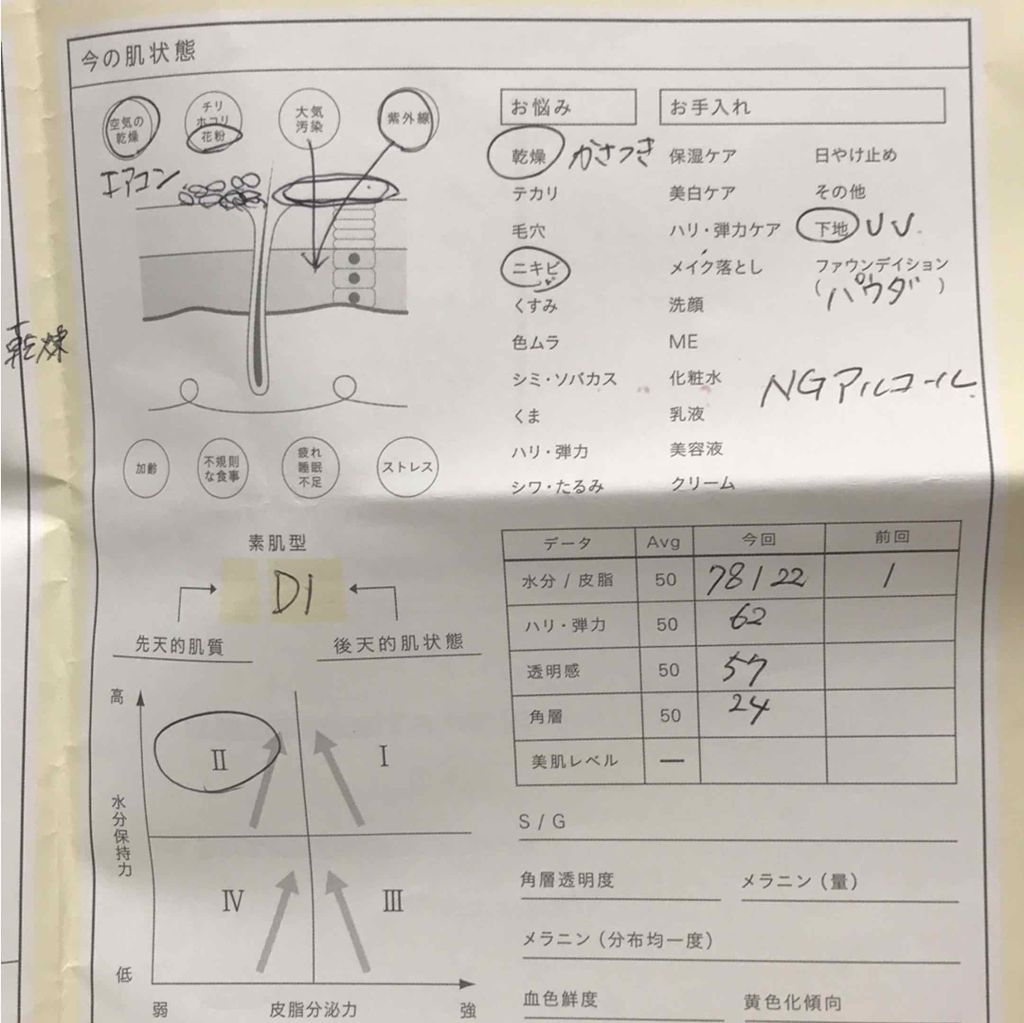 今の肌状態
空気の
乾燥
チリ
ホコリ
花粉
大気
汚染
紫外線
エアコン
乾燥
加齢
不規則
な食事
疲れ
睡眠
不足
ストレス
お悩み
乾燥 かさつき
テカリ
毛穴
ニキビ
くすみ
色ムラ
シミ・ソバカス
くま
ハリ・弾力
シワ・たるみ
お手入れ
保湿ケア 日やけ止め
美白ケア その他
ハリ・弾力ケア 下地 UV
メイク落とし ファウンデイション
洗顔 (パウダー)
ME
化粧水 NGアルコール
乳液
美容液
クリーム
素肌型
D1
先天的肌質 後天的肌状態
高
水分保持力
低
II I
IV III
弱 皮脂分泌力 強
データ Avg 今回 前回
水分/皮脂 50 78/22 /
ハリ・弾力 50 62
透明感 50 57
角層 50 24
美肌レベル —
S/G
角層透明度 メラニン(量)
メラニン(分布均一度)
血色鮮度 黄色化傾向